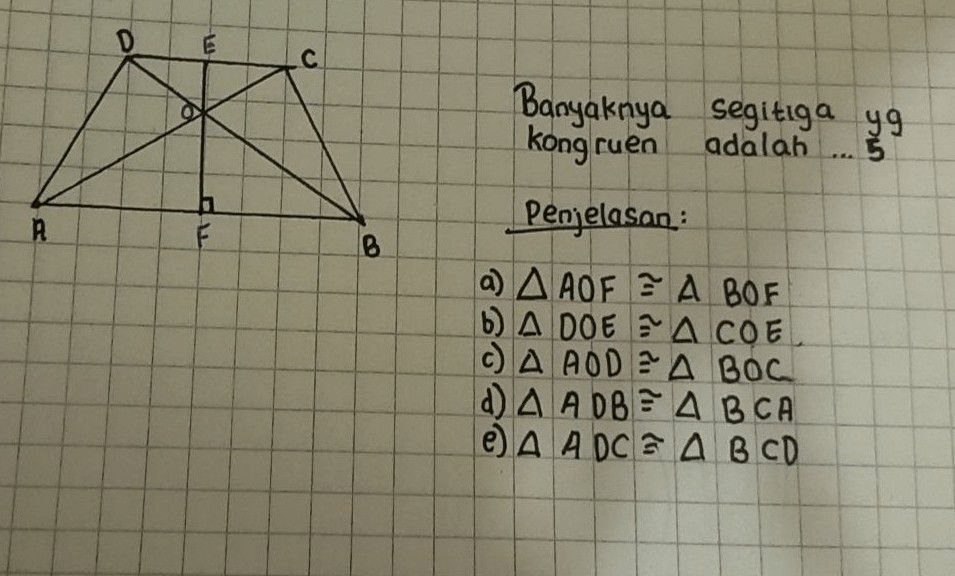 D E C
O
A F B
Banyaknya segitiga yg
kongruen adalah ... 5
Penjelasan:
a) Δ AOF ≅ Δ BOF
b) Δ DOE ≅ Δ COE
c) Δ AOD ≅ Δ BOC
d) Δ ADB ≅ Δ BCA
e) Δ ADC ≅ Δ BCD